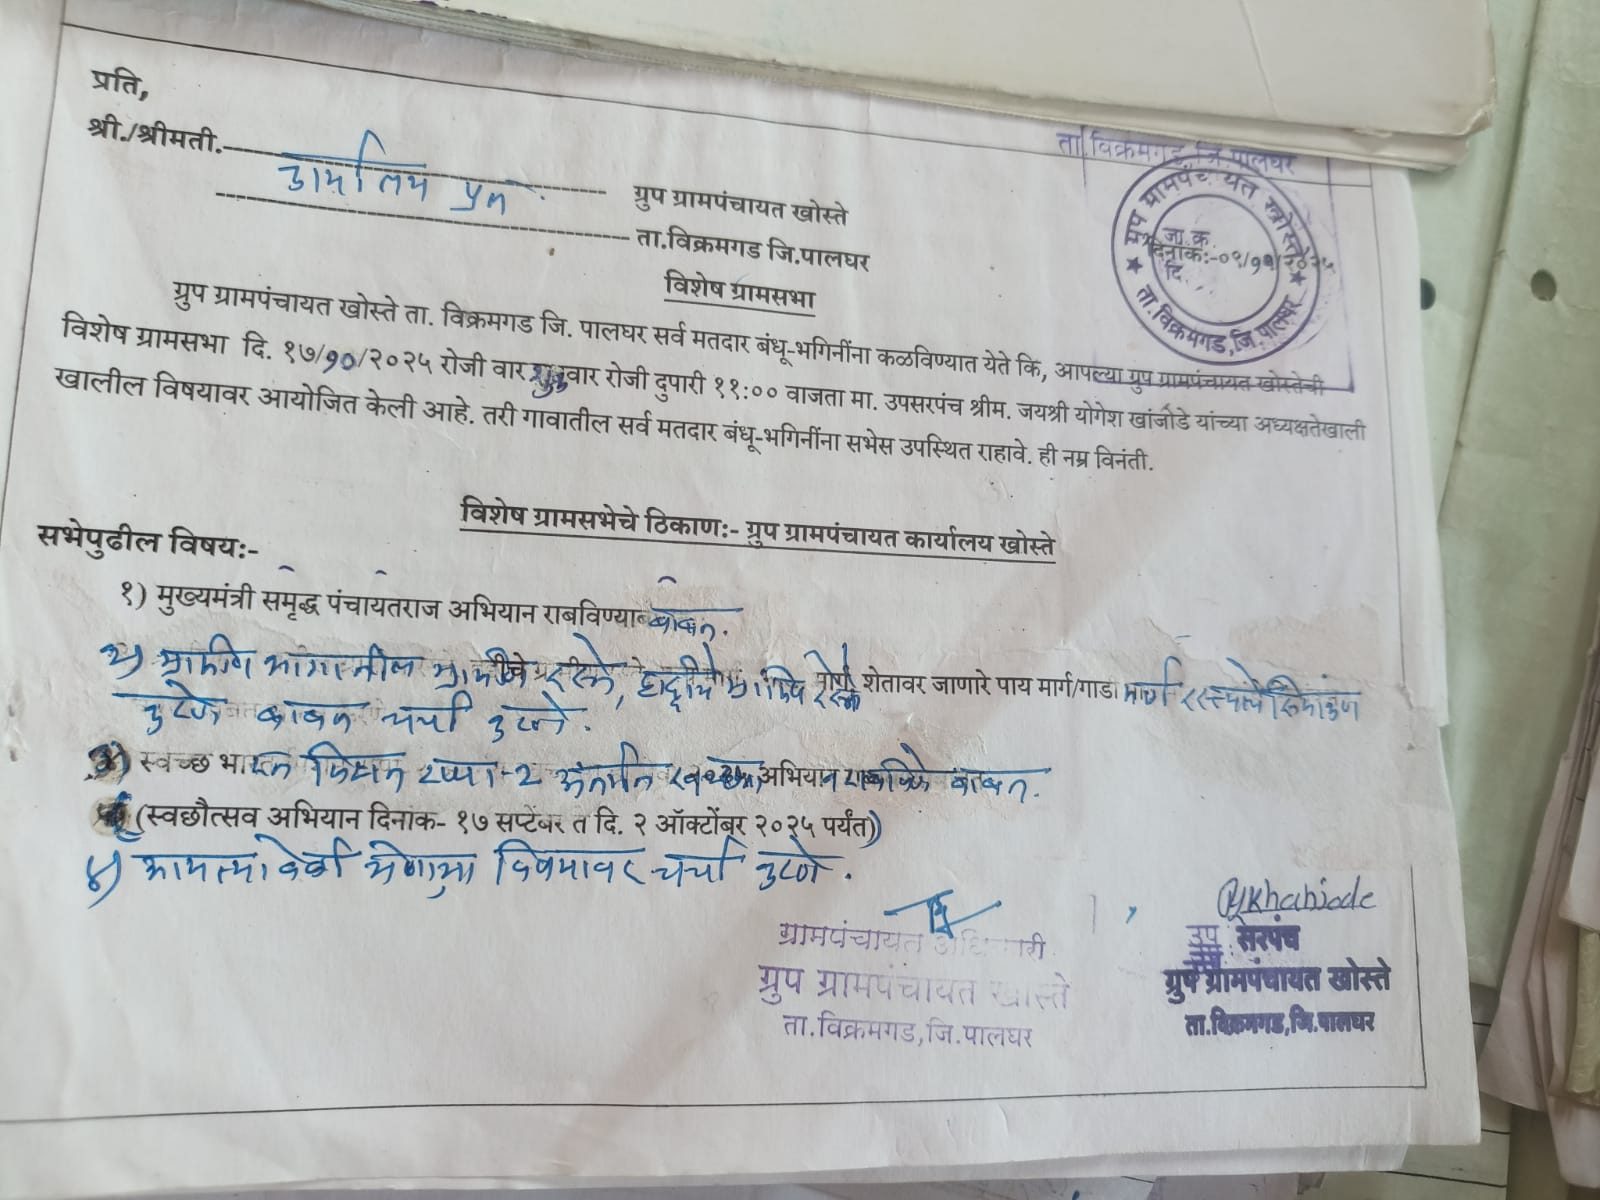 प्रति,
श्री./श्रीमती. कार्यालय प्रत.
ग्रुप ग्रामपंचायत खोस्ते
ता.विक्रमगड जि.पालघर
ता.विक्रमगड,जि.पालघर
ग्रुप ग्रामपंचायत खोस्ते
जा.क्र.
दिनांक:-०९/१०/२०२५
दि.
★ ता.विक्रमगड,जि.पालघर ★
विशेष ग्रामसभा
ग्रुप ग्रामपंचायत खोस्ते ता. विक्रमगड जि. पालघर सर्व मतदार बंधू-भगिनींना कळविण्यात येते कि, आपल्या ग्रुप ग्रामपंचायत खोस्तेची
विशेष ग्रामसभा दि. १७/१०/२०२५ रोजी वार शुक्रवार रोजी दुपारी ११:०० वाजता मा. उपसरपंच श्रीम. जयश्री योगेश खांजोडे यांच्या अध्यक्षतेखाली
खालील विषयावर आयोजित केली आहे. तरी गावातील सर्व मतदार बंधू-भगिनींना सभेस उपस्थित राहावे. ही नम्र विनंती.
विशेष ग्रामसभेचे ठिकाण:- ग्रुप ग्रामपंचायत कार्यालय खोस्ते
सभेपुढील विषय:-
१) मुख्यमंत्री समृद्ध पंचायतराज अभियान राबविण्याबाबत.
२) ग्रामीण भागातील ग्रामीण रस्ते, हद्दीचे शेतावर जाणारे पाय मार्ग/गाडा मार्ग रस्त्यांचे सिमांकन
करणे बाबत चर्चा करणे.
३) स्वच्छ भारत मिशन टप्पा-२ अंतर्गत स्वच्छता अभियान राबविणे बाबत.
(स्वछौत्सव अभियान दिनांक- १७ सप्टेंबर त दि. २ ऑक्टोंबर २०२५ पर्यंत)
४) आयत्या वेळी येणाऱ्या विषयावर चर्चा करणे.
ग्रामपंचायत अधिकारी
ग्रुप ग्रामपंचायत खोस्ते
ता.विक्रमगड,जि.पालघर
Khanjode
उप सरपंच
ग्रुप ग्रामपंचायत खोस्ते
ता.विक्रमगड,जि.पालघर